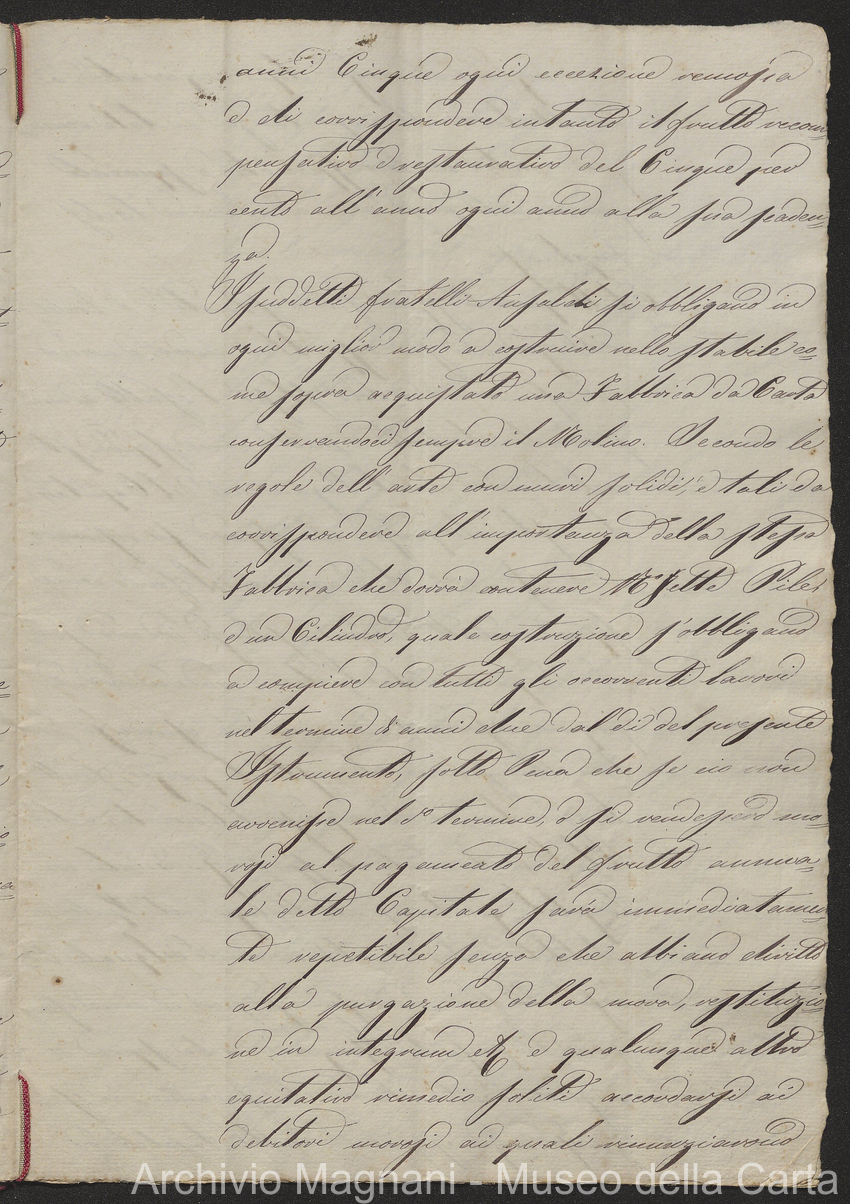 anni Cinque ogni eccezione remossa
e di corrispondere intanto il frutto recom=
pensativo e restaurativo del Cinque per
cento all'anno ogni anno alla sua scaden=
za.
I suddetti fratelli Ansaldi si obbligano in
ogni miglior modo a costruire nello stabile co=
me sopra acquistato una Fabbrica da Carta
conservandoci sempre il Molino. Secondo le
regole dell'arte con muri solidi, e tali da
corrispondere all'importanza della stessa
Fabbrica che dovrà contenere N° Sette Pile,
e un Cilindro, quale costruzione s'obbligano
a compiere con tutti gli occorrenti lavori
nel termine di anni due dal dì del presente
Istrumento, sotto Pena che se ciò non
avvenisse nel d° termine, e si rendessero mo=
rosi al pagamento del frutto annua=
le detto Capitale sarà immediatamen=
te repetibile senza che abbiano diritto
alla purgazione della mora, restituzio=
ne in integrum & e qualunque altro
equitativo rimedio soliti accordarsi ai
debitori morosi ai quali rinunziarono
Archivio Magnani - Museo della Carta